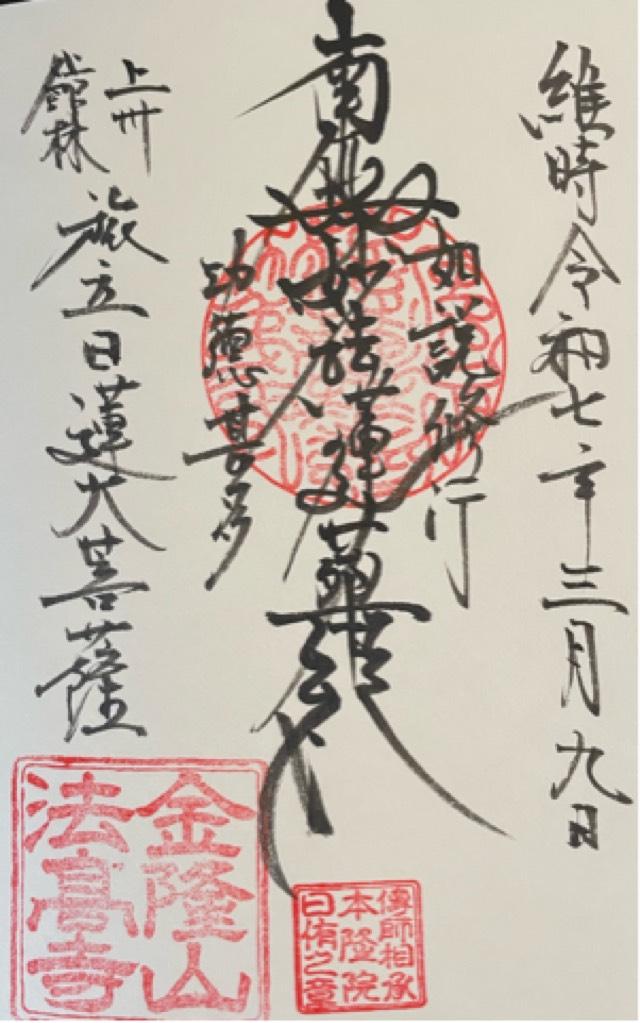 維時令和七年三月九日
如説修行
南無妙法蓮華経
功徳甚多
上州
館林
旅立日蓮大菩薩
金隆山
法高寺
傳師相承
本隆院
日侑之章